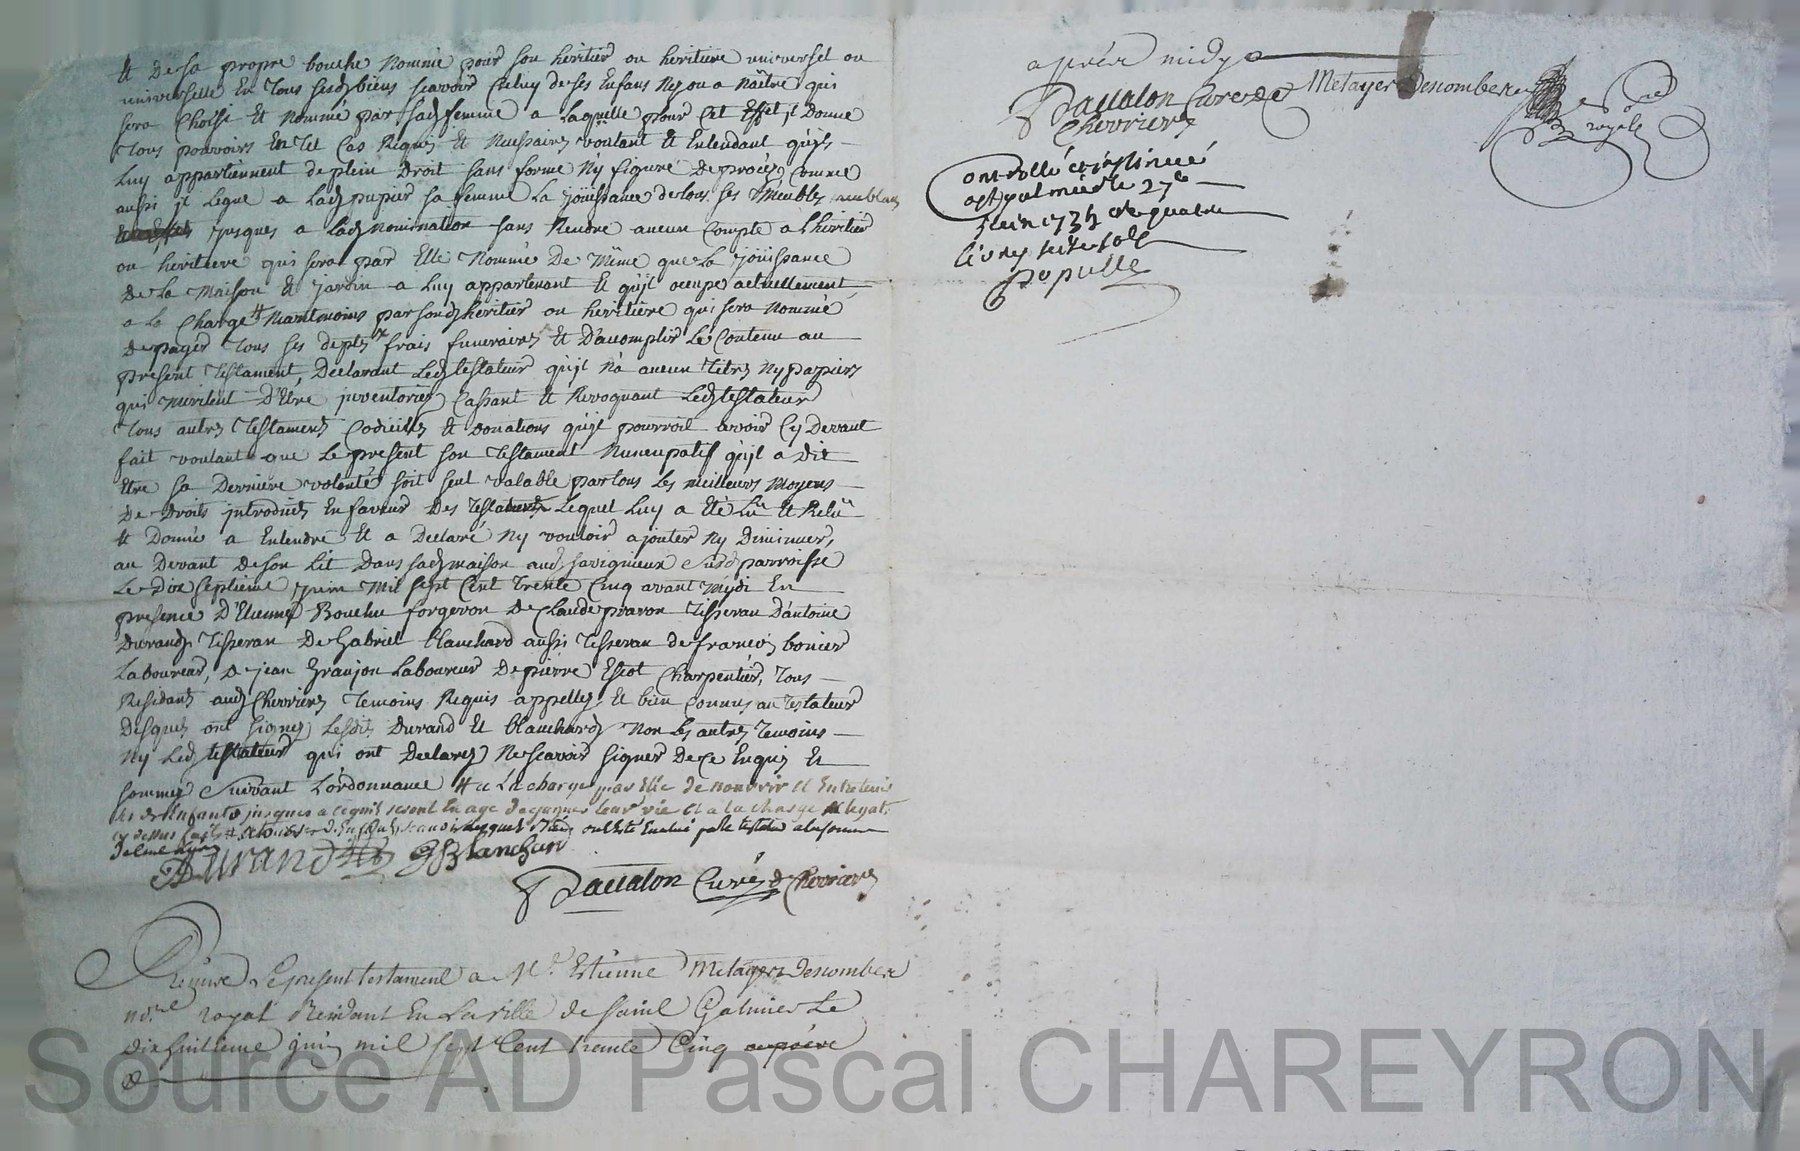 Et de sa propre bouche nommé pour son héritier ou heritiere universel ou
universelle En tous sesdz biens scavoir Celuy de ses Enfans Ny ou a Naître qui
sera Choisi Et Nommé par sadz femme a Laquelle pour Cet Effet jl Donne
Tous pouvoirs En tel Cas Requis Et Necessaires voulant Et Entendant qu'jls
Luy appartiennent de plein Droit sans forme Ny figure De procés, Comme
aussi jl Legue a Ladz pupier sa femme La jöuissance de tous ses Meubles meublans
jusques a Ladz Nomination sans Rendre aucun Compte a L'heritier
ou heritiere qui sera par Elle Nommé De Même que La jöuissance
De La Maison Et jardin a Luy appartenant Et qu'jl occupe actuellement
a La Charge # Neantmoins par sondz heritier ou heritiere qui sera Nommé
De payer Tous ses deptes frais funeraires Et D'accomplir Le Contenu au
present Testament, Declarant Ledz testateur qu'jl N'a aucun Titres Ny papiers
qui Meritent D'Etre jnventoriez Cassant Et Revoquant Ledz testateur
Tous autres Testaments Codicilles Et Donations qu'jl pourroit avoir Cy Devant
fait voulant que Le present son Testament Nuncupatif qu'jl a Dit
Etre sa Derniere volonté soit seul valable par tous Les meilleurs Moyens
De Droits jntroduits En faveur Des Lequel Luy a Eté Lu Et Relu
Et Donné a Entendre Et a Declaré Ny vouloir ajouter Ny Diminuer,
au Devant De son Lit Dans sadz maison audz savignieux susdz parroisse
Le Dix septieme juin Mil sept Cent Trente Cinq avant Midi En
presence D'Etienne Bouchu forgeron De Claude pravon Tisseran D'antoine
Durandz Tisseran De Gabriel Blanchard aussi Tisseran de francois bonier
Laboureur, De jean Granjon Laboureur De pierre Escot Charpentier, Tous
Residants audz Chevrieres Temoins Requis appellez Et bien Connus au Testateur
Desquels ont signez Lesdits Durand Et Blanchardz Non Les autres Temoins
Ny Ledz testateur qui ont Declarez Ne scavoir signer De Ce Enquis Et
sommez suivant L'ordonnance # a La charge par Elle de nourrir Et Entretenir
ses dz Enfants jusques a ce quils seront En age de gagner leur vie Et a la charge
cy dessus par le testateur a la somme
Durand G Blanchar
Dauvalon Curé de Chevrieres
Reçu Le present testament a Me Etienne Metayer Desnombere
nore royal Residant En La ville de saint Galmier Le
dix huitieme juin mil sept Cent trente Cinq
aprés midy
Dauvalon Curé de Metayer Desnombere
Chevrieres
nore
royale
Controllé et insinué
a st galmier le 27e
juin 1735 de quatre
livres seize sols
Populle
Source AD Pascal CHAREYRON